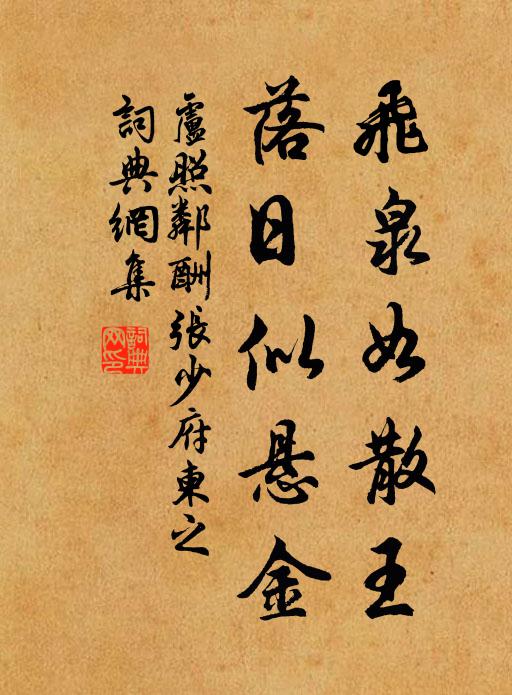 飛泉如散王
落日似悬金
盧照鄰酬張少府東之
詞典網集
詞典网印